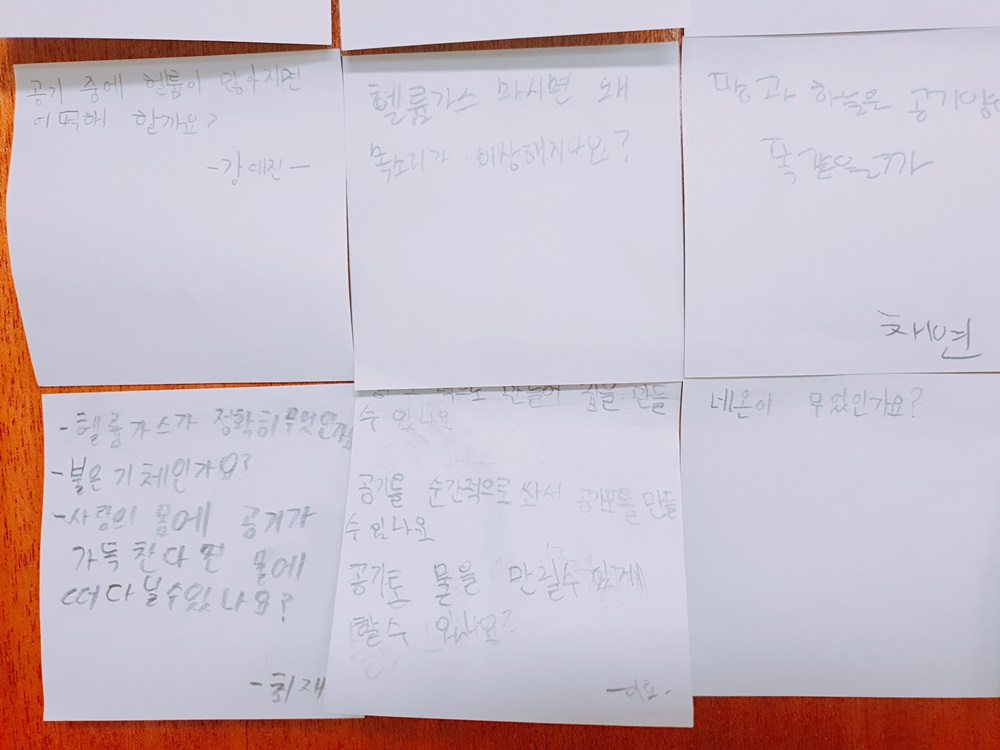 공기 중에 헬륨이 많아지면
어떡해 할까요?
-강예진-
헬륨가스 마시면 왜
목소리가 이상해지나요?
땅과 하늘은 공기양
똑같은
채연
-헬륨가스가 정확히 무엇인지
-불은 기체인가요?
-사람의 몸에 공기가
가득 찬다면 물에
떠다닐수있나요?
-최재
만들어 만들
수 있나요
공기를 순간적으로 쏴서 공기포를 만들
수 있나요
공기로 물을 만질수 있게
할수 있나요?
네온이 무엇인가요?